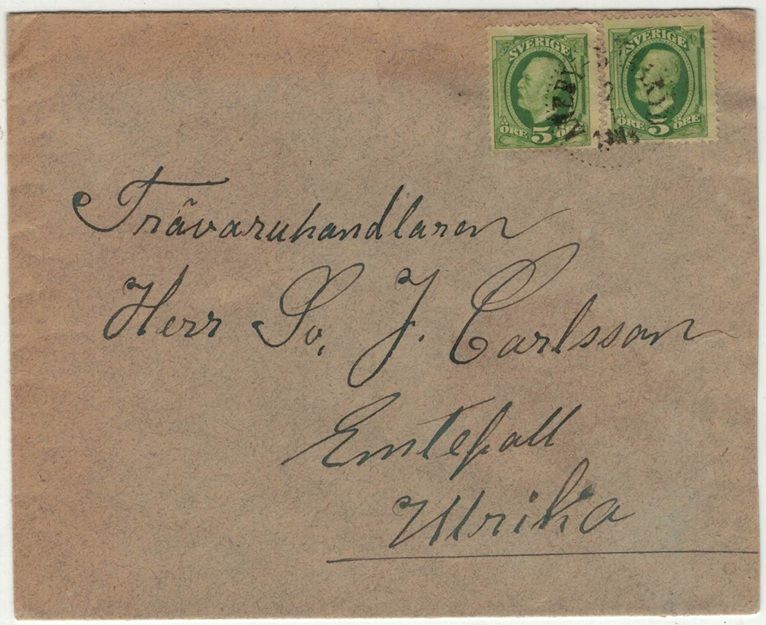 SVERIGE SVERIGE
ÖRE 5 ÖRE 5 ÖRE
Trävaruhandlaren
Herr Sv. J. Carlsson
Emtefall
Ulrika